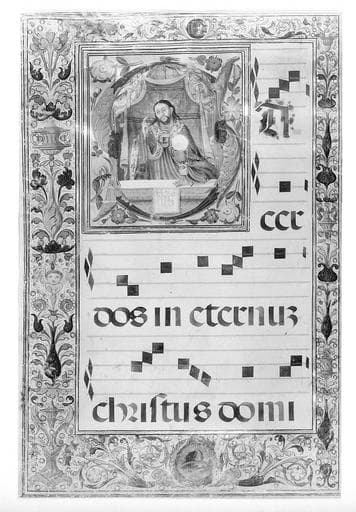 S A
cer
dos in eternuz
christus domi